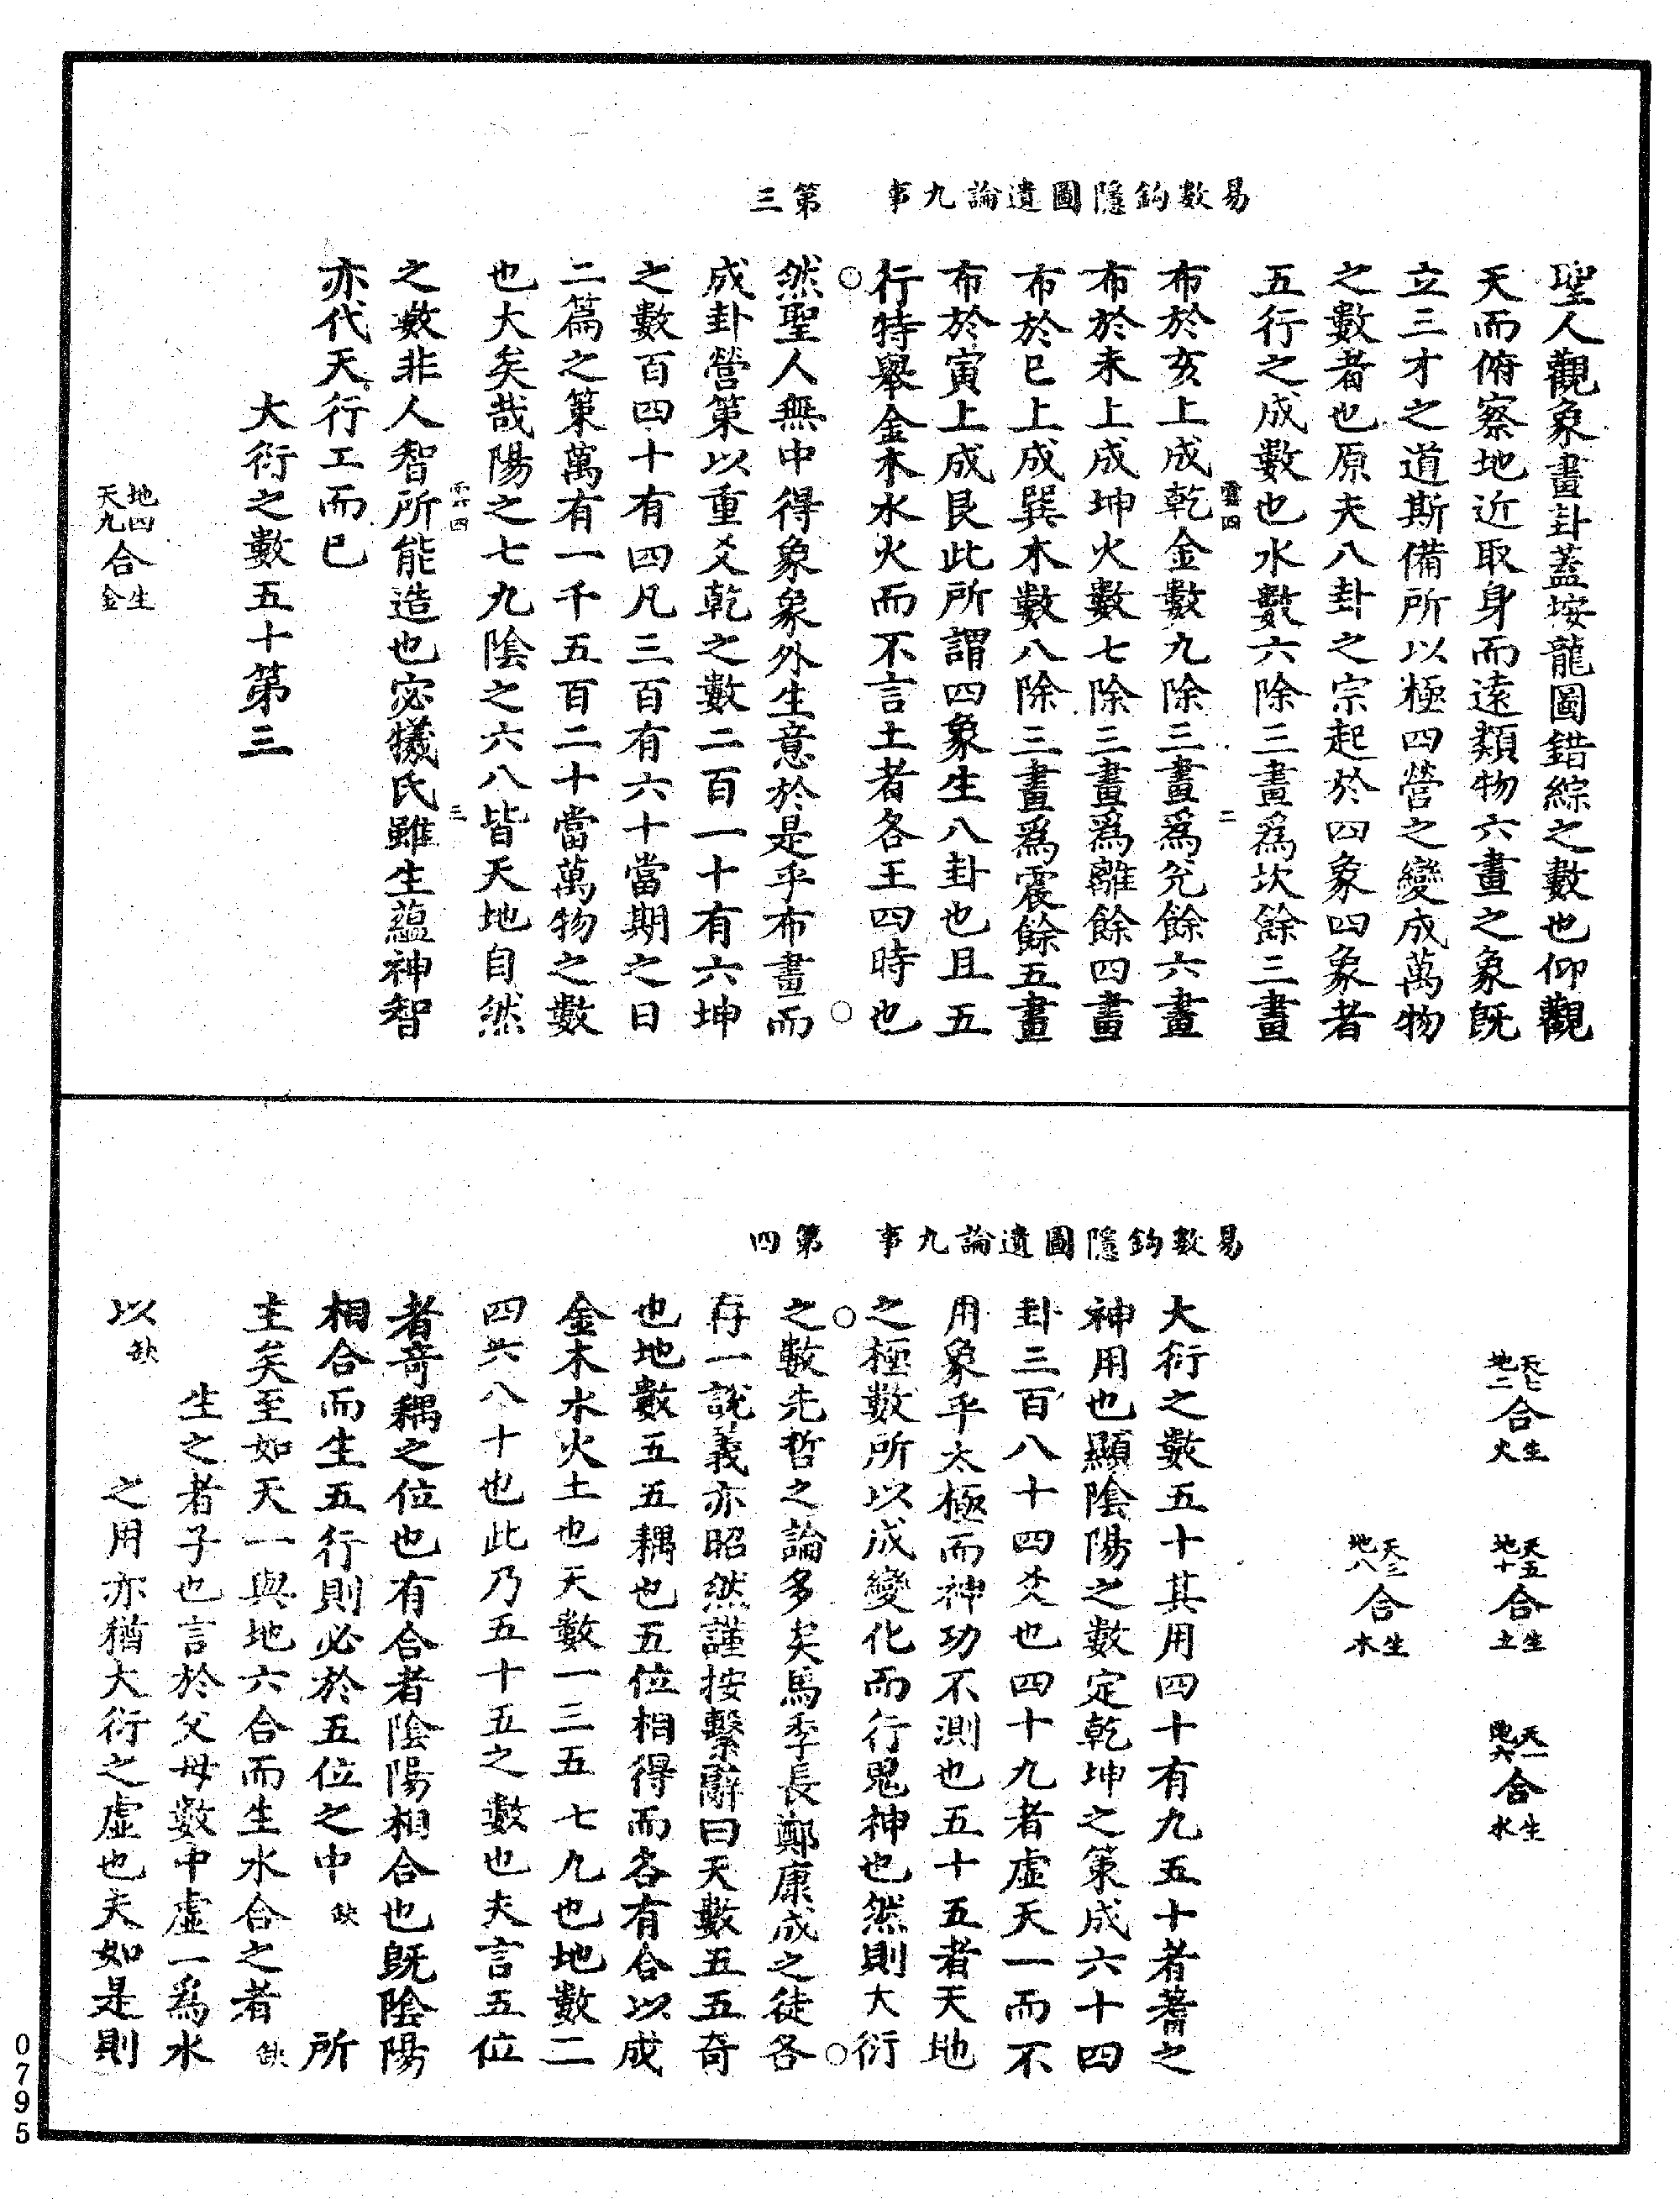 易數鈎隱圖遺論九事　第三
聖人觀象畫卦蓋按龍圖錯綜之數也仰觀
天而俯察地近取身而遠類物六畫之象既
立三才之道斯備所以極四營之變成萬物
之數者也原夫八卦之宗起於四象四象者
五行之成數也水數六除三畫爲坎餘三畫
布於亥上成乾金數九除三畫爲兊餘六畫
雲四　二
布於未上成坤火數七除三畫爲離餘四畫
布於巳上成巽木數八除三畫爲震餘五畫
布於寅上成艮此所謂四象生八卦也且五
行特舉金木水火而不言土者各王四時也
然聖人無中得象象外生意於是乎布畫而
成卦營策以重爻乾之數二百一十有六坤
之數百四十有四凡三百有六十當期之日
二篇之策萬有一千五百二十當萬物之數
也大矣哉陽之七九陰之六八皆天地自然
雲四　三
之數非人智所能造也宓犧氏雖生蘊神智
亦代天行工而已
大衍之數五十第三
地四天九合生金
易數鈎隱圖遺論九事　第四
天七地二合生火
天五地十合生土
天一地六合生水
天三地八合生木
大衍之數五十其用四十有九五十者蓍之
神用也顯陰陽之數定乾坤之策成六十四
卦三百八十四爻也四十九者虛天一而不
用象乎太極而神功不測也五十五者天地
之極數所以成變化而行鬼神也然則大衍
之數先哲之論多矣馬季長鄭康成之徒各
存一說義亦昭然謹按繫辭曰天數五五奇
也地數五五耦也五位相得而各有合以成
金木水火土也天數一三五七九也地數二
四六八十也此乃五十五之數也夫言五位
者奇耦之位也有合者陰陽相合也既陰陽
相合而生五行則必於五位之中缺　所
主矣至如天一與地六合而生水合之者缺
生之者子也言於父母數中虛一爲水
以缺　之用亦猶大衍之虛也夫如是則
0795